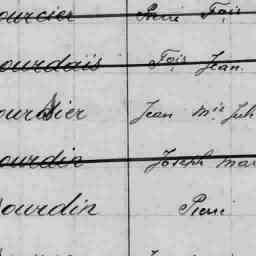 ourcier Pierre Fçois
ourdais Fçois Jean
our sier Jean Mie Jul
ourdin Joseph Mar
ourdin Pierre